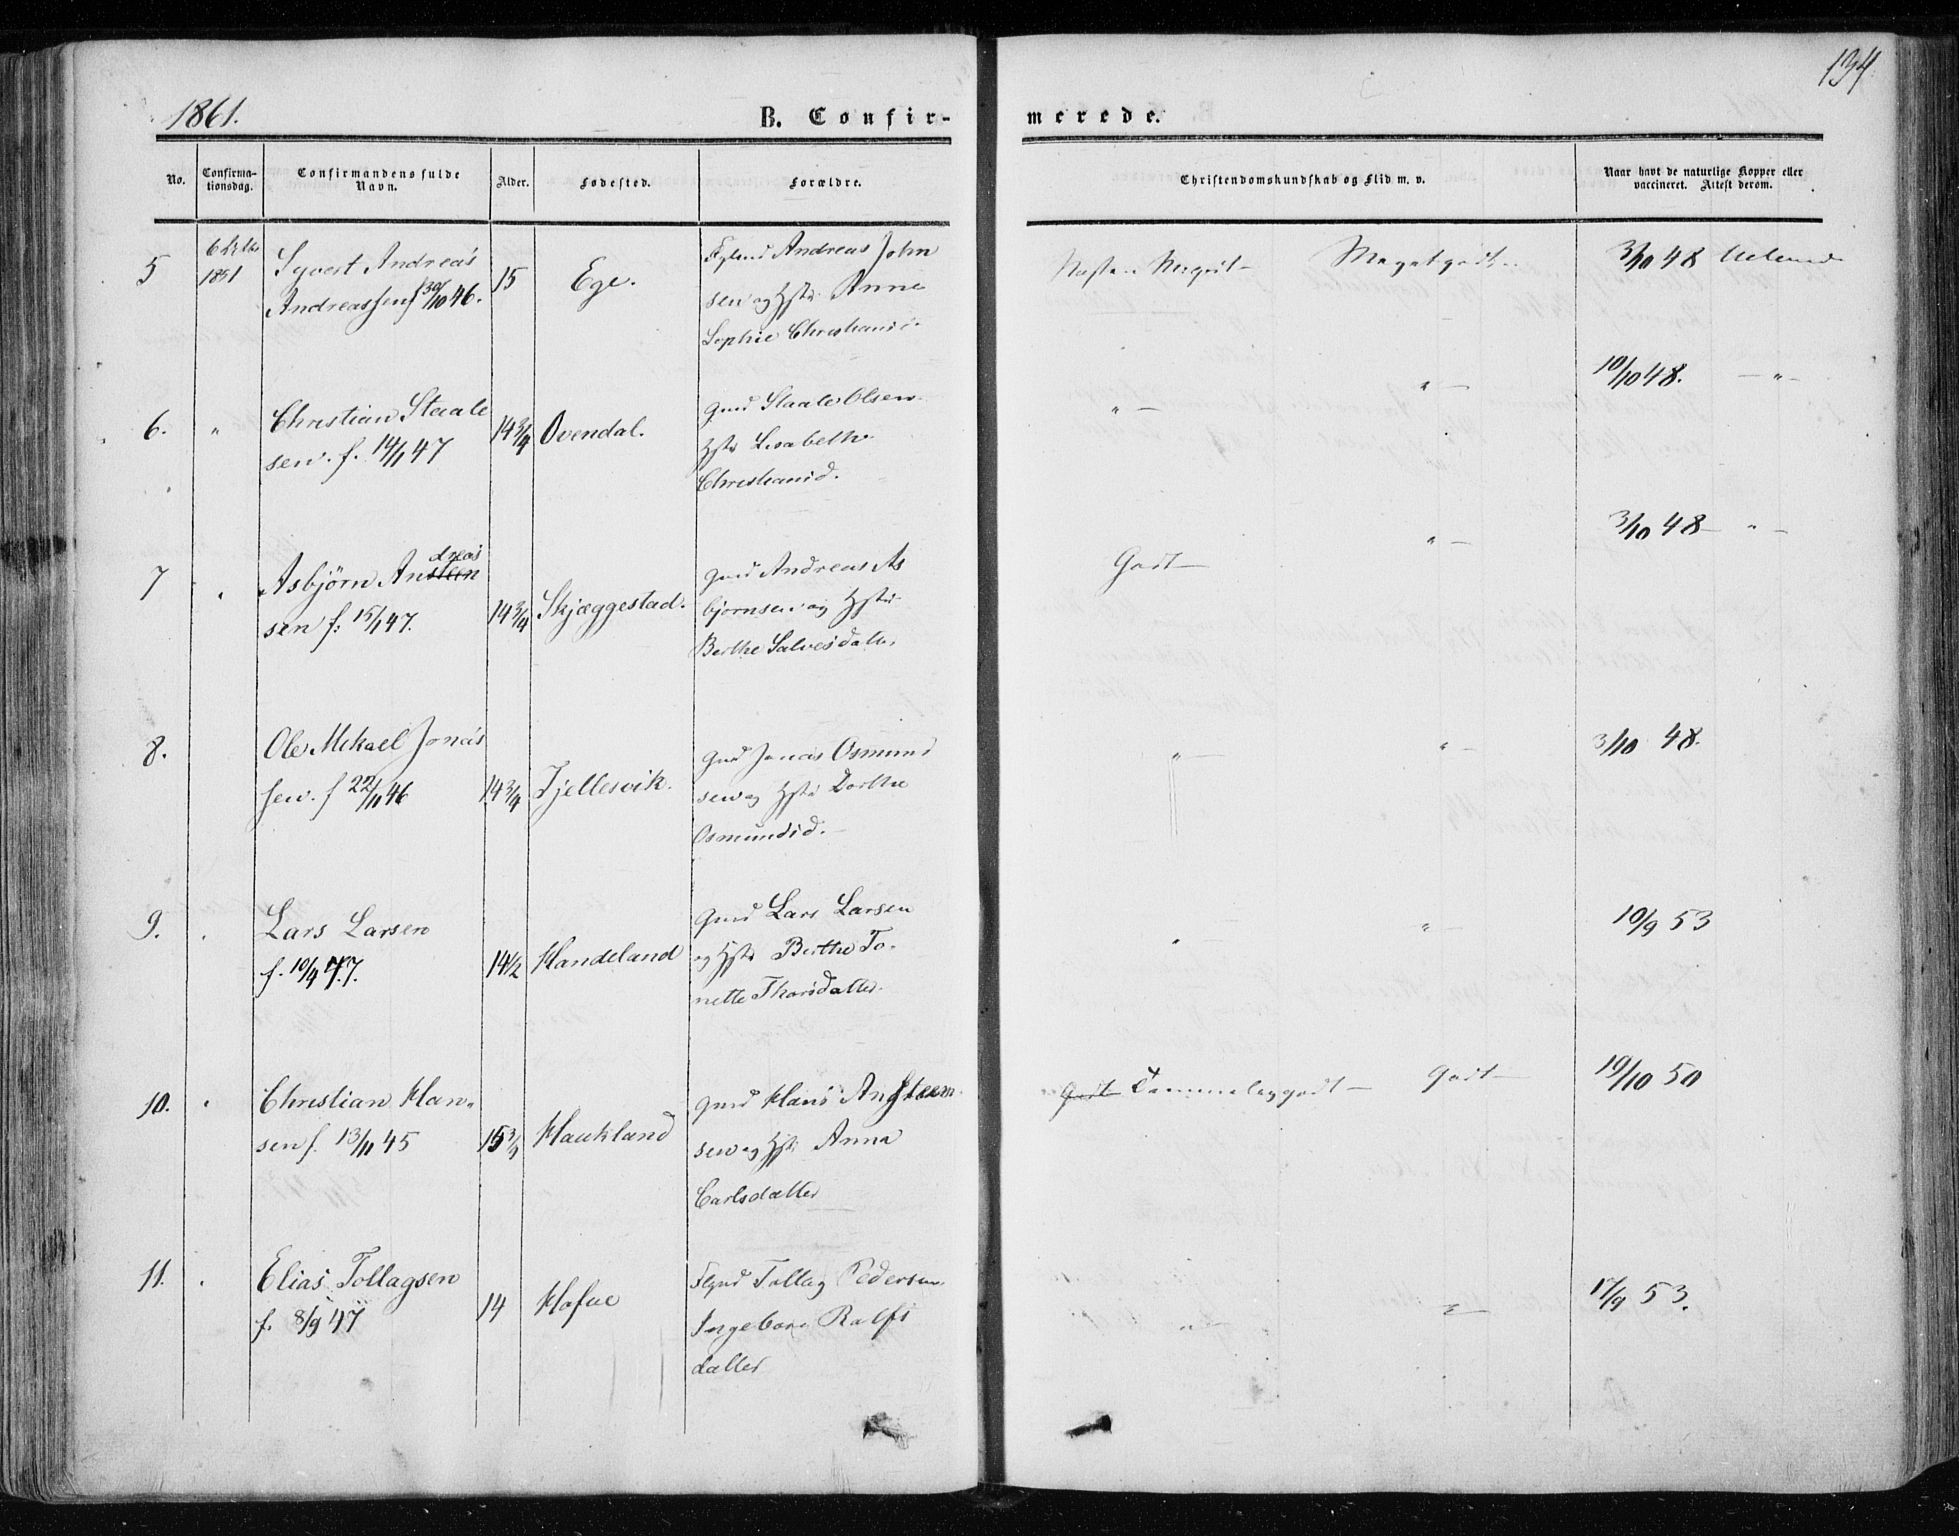 1861.
B. Confir-
merede.
134
No.
Confirma-
tionsdag.
Confirmandens fulde
Navn.
Alder.
Fødested.
Forældre.
Christendomskundskab og Flid m. v.
Naar havt de naturlige Kopper eller
vaccineret. Attest derom.
5
Syvert Andreas
Andreassen f 30/10 46.
15
Ege.
Andreas John
sen og Hst: Anne
Sophie Christiansd.
Næsten Meget
Meget godt
3/10 48
6.
"
Christian Staale
sen. f. 14/1 47
14 3/4
Ovendal.
Gmd Staale Olsen
Hst: Lisabeth
Christiansd.
" —
" —
10/10 48. — " —
7
Asbjørn Andreas
sen f: 15/1 47.
14 3/4
Skjæggestad.
Gmd Andreas As
bjørnsen og Hst:
Berthe Salvesdatter
Godt —
" —
3/10 48 — " —
8.
Ole Mikael Jonas
sen. f 22/11 46
14 3/4
Fjellesvik.
Gmd Jonas Osmund
sen og Hst: Dorthe
Osmundsd.
" —
" —
3/10 48.
9.
Lars Larsen
f. 10/4 47.
14 1/2
Handeland
Gmd Lars Larsen
og Hst: Berthe To-
nette Thorsdatter.
" —
" —
10/9 53
10.
Christian Han-
sen f. 13/11 45
15 3/4
Haukland
Gmd Hans Ansteen
sen og Hst: Anna
Carlsdatter
Godt Temmelig godt —
Godt —
10/10 50
11.
Elias Tollagsen
f. 8/9 47
14
Hafue
Tollag Pedersen
Ingeborg Ralfs
datter
" —
" —
17/9 53.